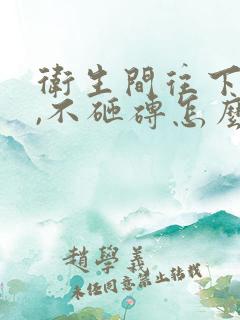 衛生間往下
,不砸磚怎麼
趙學義
未任同意禁止转载